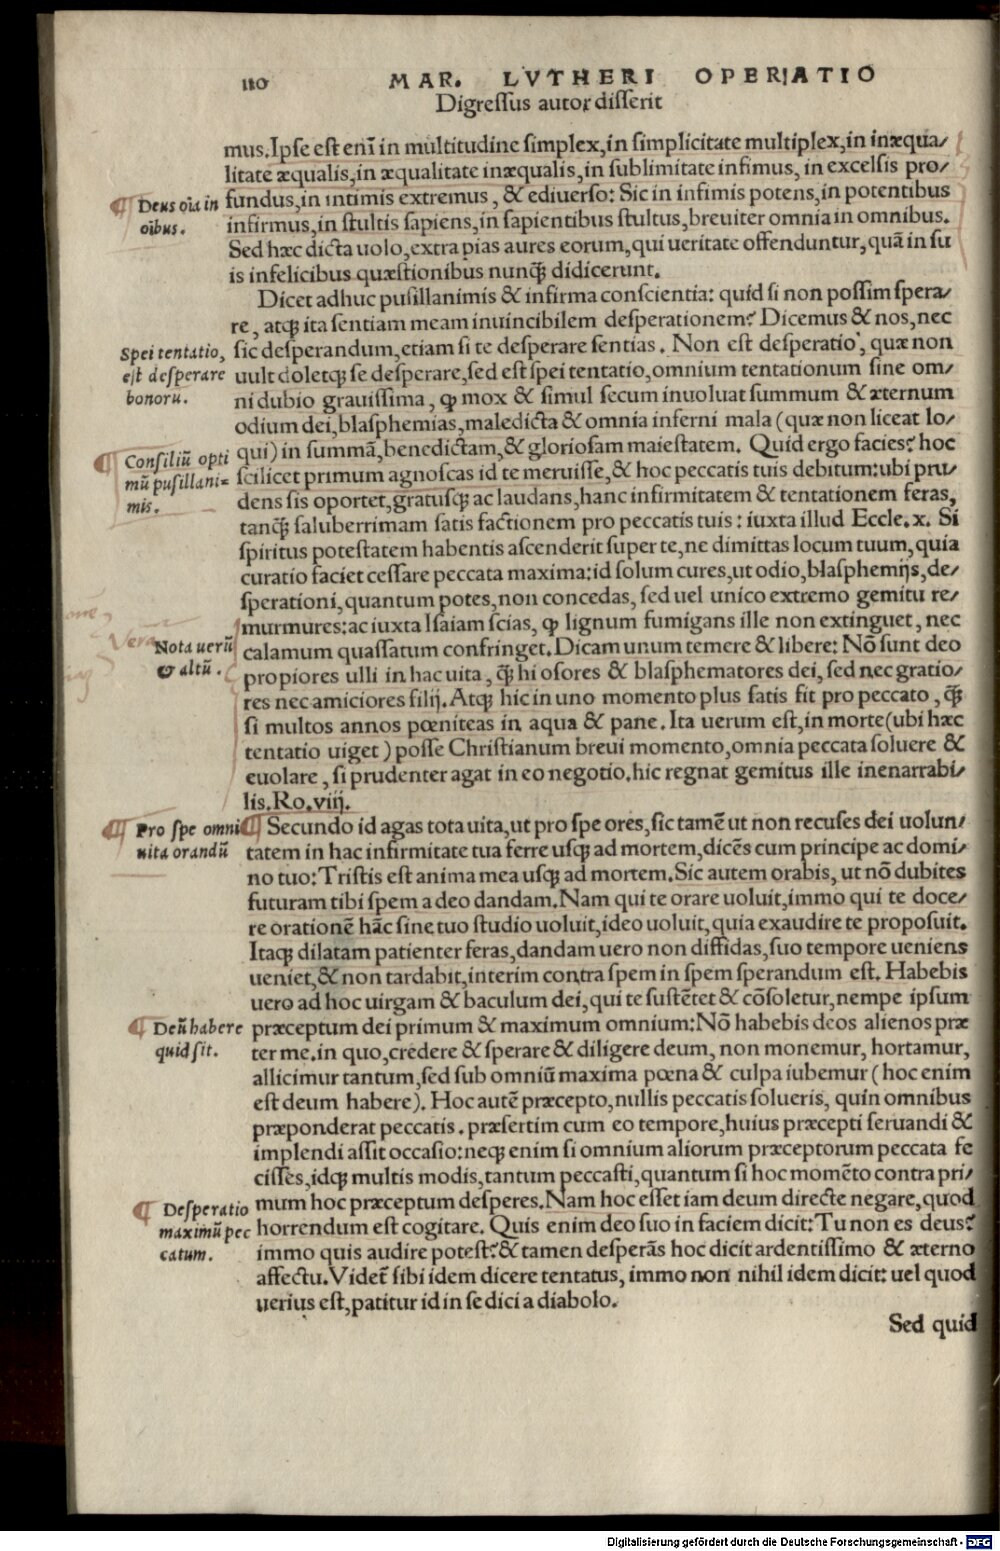 110 MAR. LVTHERI OPERATIO
Digressus autor disserit
mus.Ipse est enī in multitudine simplex,in simplicitate multiplex,in inæqua/
litate æqualis,in æqualitate inæqualis,in sublimitate infimus, in excelsis pro/
fundus,in intimis extremus, & ediuerso: Sic in infimis potens,in potentibus
Deus oīa in
oībus.
infirmus,in stultis sapiens,in sapientibus stultus,breuiter omnia in omnibus.
Sed hæc dicta uolo,extra pias aures eorum,qui ueritate offenduntur,quā in su
is infelicibus quæstionibus nunq̄ didicerunt.
Dicet adhuc pusillanimis & infirma conscientia: quid si non possim spera/
re, atq; ita sentiam meam inuincibilem desperationem? Dicemus & nos,nec
sic desperandum,etiam si te desperare sentias. Non est desperatio, quæ non
Spei tentatio,
est desperare
bonoru.
uult doletq; se desperare,sed est spei tentatio,omnium tentationum sine om/
ni dubio grauissima, ꝙ mox & simul secum inuoluat summum & æternum
odium dei,blasphemias,maledicta & omnia inferni mala (quæ non liceat lo/
qui) in summā,benedictam,& gloriosam maiestatem. Quid ergo facies? hoc
Consiliū opti
mū pusillani=
mis.
scilicet primum agnoscas id te meruisse,& hoc peccatis tuis debitum:ubi pru/
dens sis oportet,gratusq; ac laudans,hanc infirmitatem & tentationem feras,
tanq̄ saluberrimam satis factionem pro peccatis tuis: iuxta illud Eccle.x. Si
spiritus potestatem habentis ascenderit super te,ne dimittas locum tuum,quia
curatio faciet cessare peccata maxima:id solum cures,ut odio,blasphemijs,de/
sperationi,quantum potes,non concedas, sed uel unico extremo gemitu re/
murmures:ac iuxta Isaiam scias, ꝙ lignum fumigans ille non extinguet, nec
Vera
Nota uerū
& altū.
calamum quassatum confringet.Dicam unum temere & libere: Nō sunt deo
propiores ulli in hac uita, q̄ hi osores & blasphematores dei, sed nec gratio/
res nec amiciores filij.Atq; hic in uno momento plus satis fit pro peccato, q̄
si multos annos pœniteas in aqua & pane. Ita uerum est,in morte(ubi hæc
tentatio uiget) posse Christianum breui momento,omnia peccata soluere &
euolare, si prudenter agat in eo negotio.hic regnat gemitus ille inenarrabi/
lis.Ro.viij.
Pro spe omni
uita orandū
¶ Secundo id agas tota uita,ut pro spe ores,sic tamē ut non recuses dei uolun/
tatem in hac infirmitate tua ferre usq; ad mortem,dicēs cum principe ac domi/
no tuo:Tristis est anima mea usq; ad mortem.Sic autem orabis, ut nō dubites
futuram tibi spem a deo dandam.Nam qui te orare uoluit,immo qui te doce/
re orationē hāc sine tuo studio uoluit,ideo uoluit,quia exaudire te proposuit.
Itaq; dilatam patienter feras,dandam uero non diffidas,suo tempore ueniens
ueniet,& non tardabit,interim contra spem in spem sperandum est. Habebis
uero ad hoc uirgam & baculum dei,qui te sustētet & cōsoletur,nempe ipsum
Deū habere
quid sit.
præceptum dei primum & maximum omnium:Nō habebis deos alienos præ
ter me.in quo,credere & sperare & diligere deum, non monemur, hortamur,
allicimur tantum,sed sub omniū maxima pœna & culpa iubemur (hoc enim
est deum habere). Hoc autē præcepto,nullis peccatis solueris, quin omnibus
præponderat peccatis. præsertim cum eo tempore,huius præcepti seruandi &
implendi assit occasio:neq; enim si omnium aliorum præceptorum peccata fe
cisses,idq; multis modis,tantum peccasti,quantum si hoc momēto contra pri/
Desperatio
maximū pec
catum.
mum hoc præceptum desperes.Nam hoc esset iam deum directe negare,quod
horrendum est cogitare. Quis enim deo suo in faciem dicit: Tu non es deus?
immo quis audire potest?& tamen desperās hoc dicit ardentissimo & æterno
affectu.Videt̄ sibi idem dicere tentatus, immo non nihil idem dicit: uel quod
uerius est,patitur id in se dici a diabolo.
Sed quid
Digitalisierung gefördert durch die Deutsche Forschungsgemeinschaft - DFG